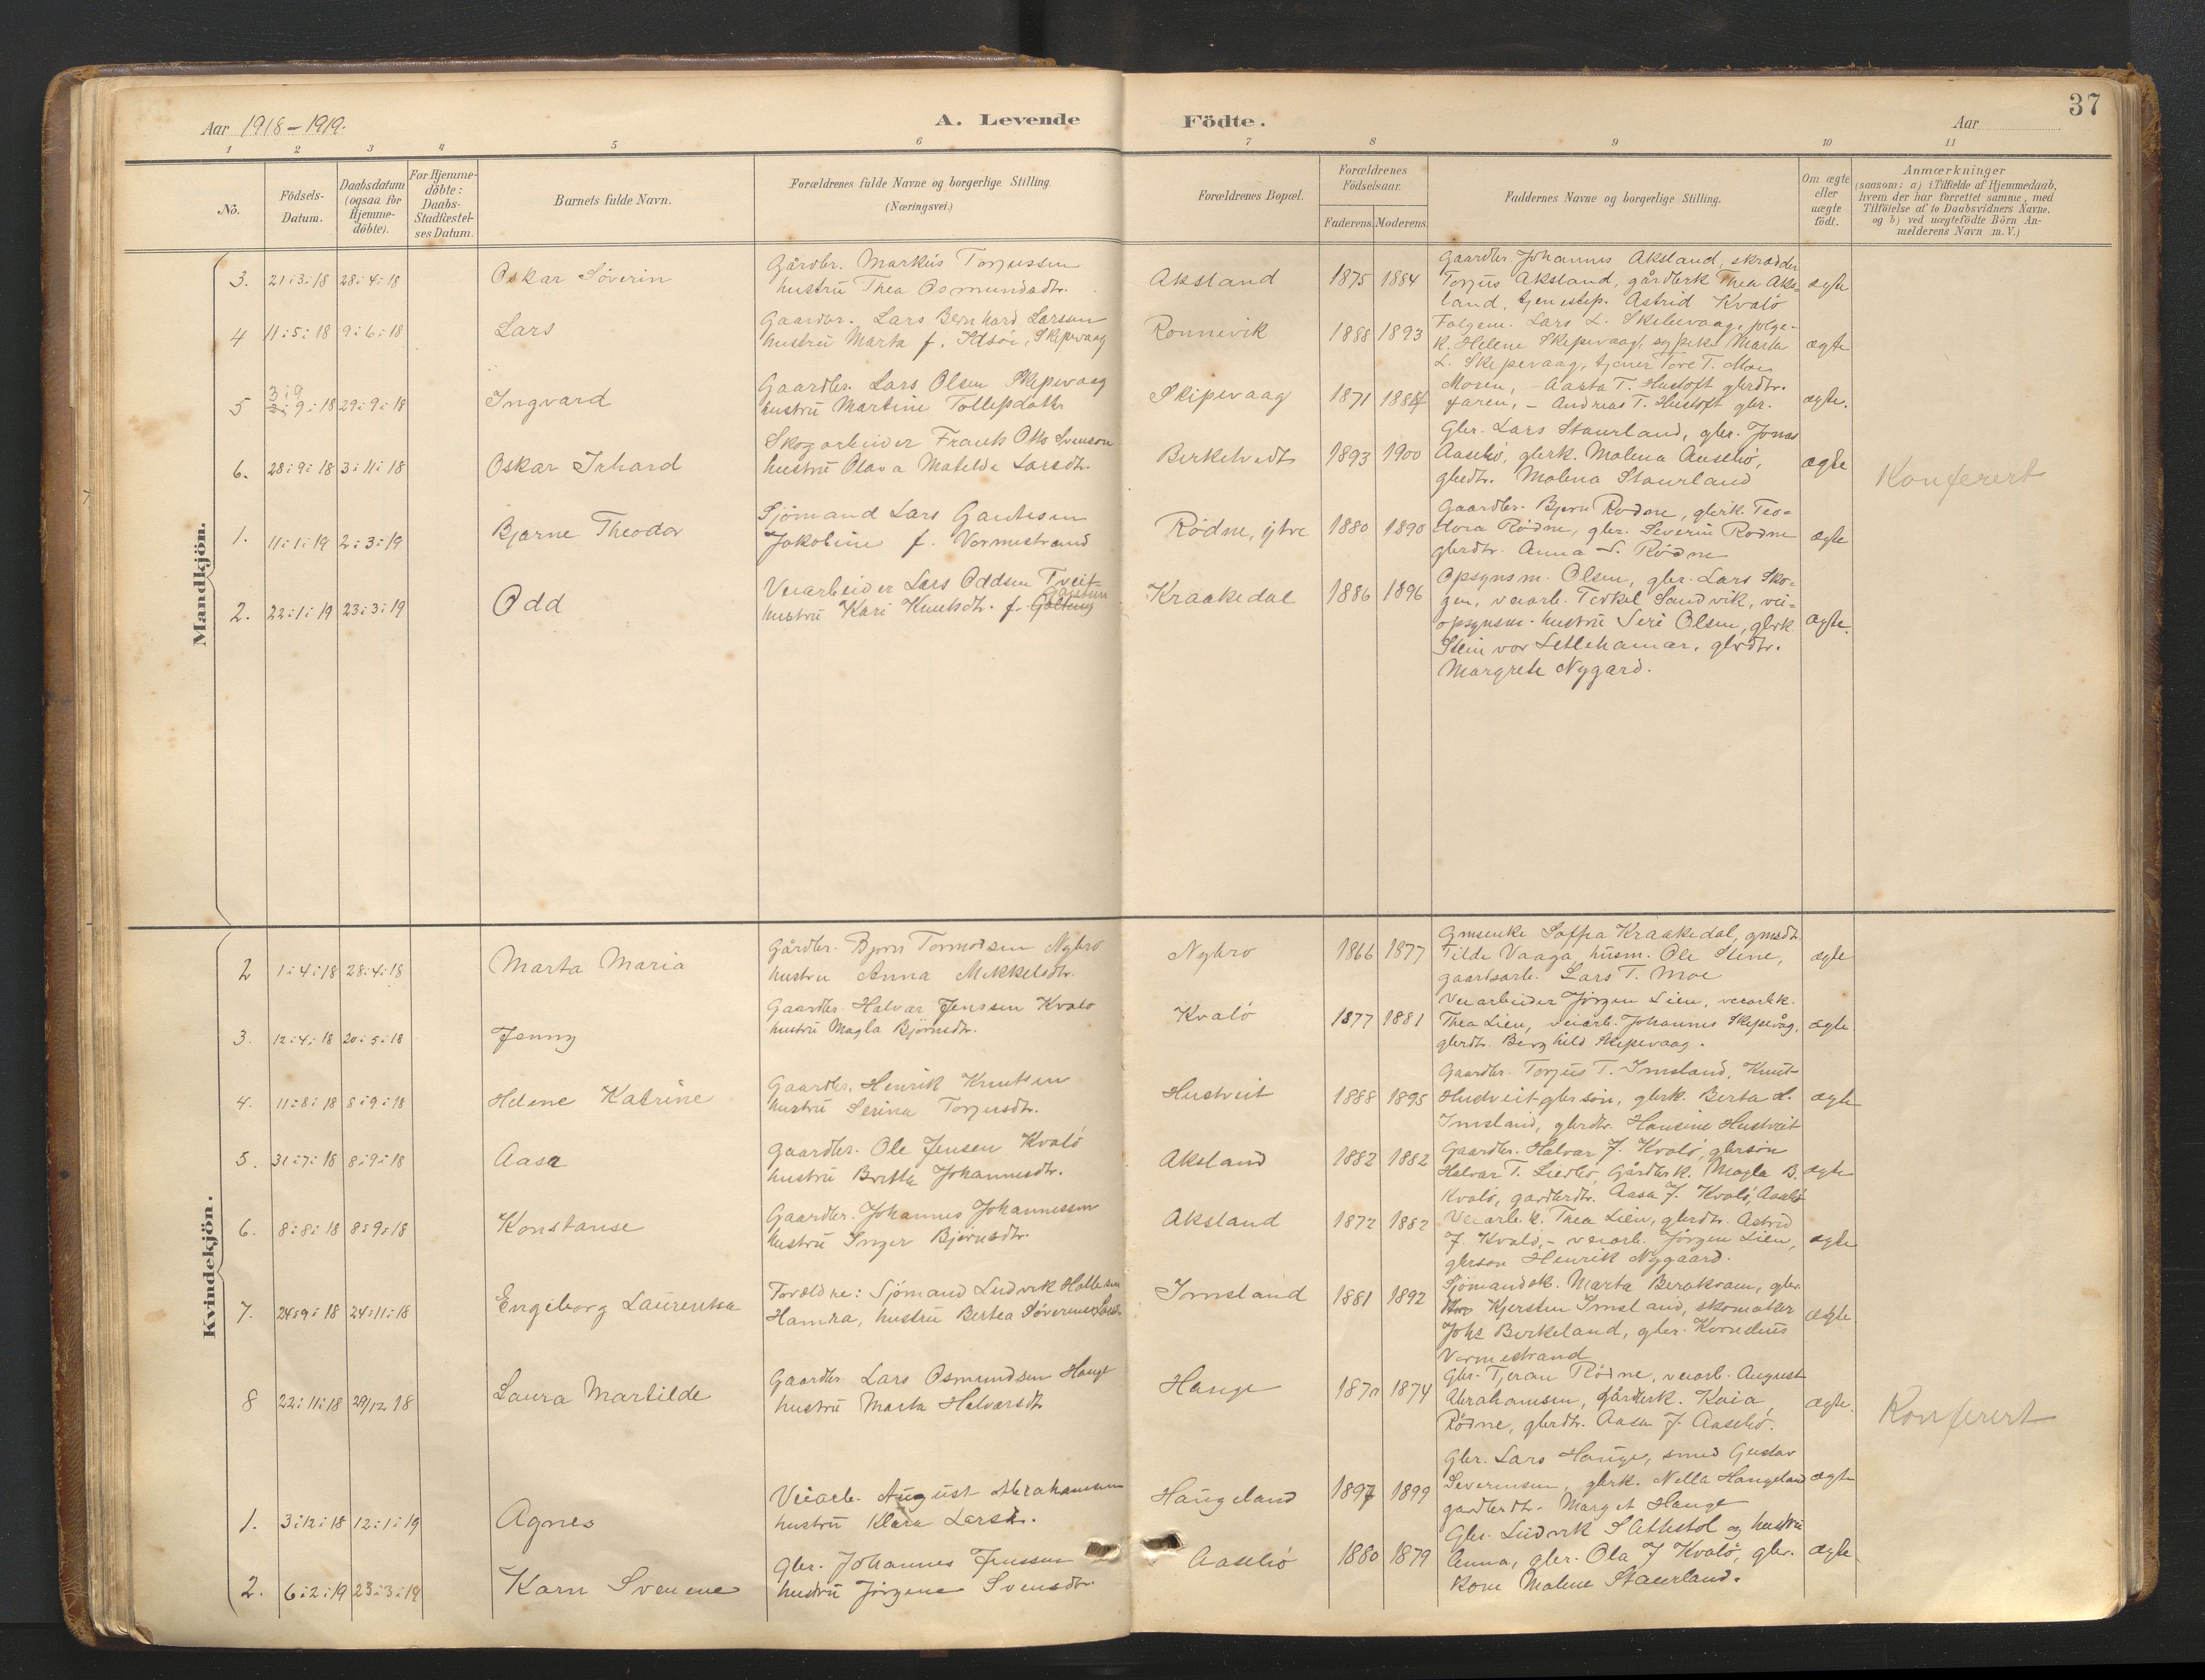 37
Aar 1918–1919.
A. Levende Födte.
Aar
1 2 3 4 5 6 7 8 9 10 11
No.
Födsels-Datum.
Daabsdatum (ogsaa for Hjemme-döbte).
For Hjemme-döbte: Daabs-Stadfæstel-ses Datum.
Barnets fulde Navn.
Forældrenes fulde Navne og borgerlige Stilling.
(Næringsvei.)
Forældrenes Bopæl.
Forældrenes Födselsaar.
Faderens. Moderens.
Faddernes Navne og borgerlige Stilling.
Om ægte eller uægte födt.
Anmærkninger
(saasom: a) i Tilfælde af Hjemmedaab,
hvem der har forrettet samme, med
Tilföielse af to Daabsvidners Navne,
og b) ved uægtefödte Börn An-
melderens Navn m.V.)
Mandkjön.
3. 21:3:18 28:4:18 Oskar Söverin
Gårdbr. Markus Torjussen
hustru Thea Osmundsdtr.
Aksland 1875 1884
Gaardbr. Johannes Aksland, skrædder
Torjus Aksland, gårdbrk Thea Aks=
land, tjenestep. Astrid Kvalö
ægte
4 11:5:18 9:6:18 Lars
Gaardbr. Lars Bernhard Larsen
hustru Marta f. Idsöi, Skipevaag
Ronnevik 1888 1893
Folgem. Lars L. Skibevaag, folge-
k. Helene Skipevaag, sypike Marta
L. Skipevaag, tjener Tore T. Moe
ægte
5 3:9 2:9:18 29:9:18 Ingvard
Gaardbr. Lars Olsen Skipevaag
hustru Martine Tollefsdatter
Skipevaag 1871 1884
Moren, – Aasta T. Hustoft gbrdtr.
faren, – Andreas T. Hustoft gbr.
ægte.
6. 28:9:18 3:11:18 Oskar Irhard
Skogarbeider Frank Otto Svenson
hustru Olava Matelde Larsdtr.
Birketvedt 1893 1900
Gbr. Lars Staurland, gbr. Jonas
Aaselió, gbrk. Malena Aaselió,
gbrdtr. Malena Staurland
ægte
Konferert
1. 11:1:19 2:3:19 Bjarne Theodor
Sjömand Lars Gautesen
Jakobine f. Vormestrand
Rödne, ytre 1880 1890
Gaardbr. Bjorn Rodne, gbrk. Teo=
dora Rödne, gbr. Severin Rodne
gbrdtr. Anna S. Rödne
ægte
2. 22:1:19 23:3:19 Odd
Veiarbeider Lars Oddsen Tveit-
hustru Kari Knutsdtr. f.
Kraakedal 1886 1896
Opsynsm. Olsen, gbr. Lars Sko=
gen, veiarb. Terkel Sandvik, vei=
opsynsm. hustru Seri Olsen, gbrk
Steinvor Letlehamar, gbrdtr.
Margrete Nygard.
ægte.
Kvindekjön.
2 1:4:18 28:4:18 Marta Maria
Gårdbr. Bjorn Tormodsen Nybro
hustru Anna Mikkelsdtr.
Nybro 1866 1877
Gmsenke Soffia Kraakedal, gmsdt.
Tilda Vaaga, husm. Ole Stene,
gaardsarb. Lars T. Moe
ægte
3. 12:4:18 20:5:18 Jenny
Gaardbr. Halvar Jenssen Kvalö
hustru Magla Björnsdtr.
Kvalö 1877 1881
Veiarbeider Jörgen Lien, veiarbk.
Thea Lien, veiarb. Johannes Skipevåg,
gbrdtr. Berghild Skipevaag.
ægte
4. 11:8:18 8:9:18 Helene Katrine
Gaardbr. Henrik Knutsen
hustru Serina Torjusdtr.
Hustveit 1888 1895
Gaardbr. Torjus T. Imsland, Knut
Hustveit gbrsön, gbrk. Berta L.
Imsland, gbrdtr. Hansine Hustveit
ægte
5. 31:7:18 8:9:18 Aasa
Gaardbr. Ole Jensen Kvaló
hustru Britta Johannesdtr.
Aksland 1882 1882
Gaardbr. Halvar J. Kvaló, gbrsön
Halvar T. Liedló, Gårdbrk. Magla B.
Kvaló, gardbrdtr. Aasa J. Kvaló,
ægte
6. 8:8:18 8:9:18 Konstanse
Gaardbr. Johannes Johannessen
hustru Inger Bjornsdtr.
Aksland 1872 1882
Veiarb.k. Thea Lien, gbrdtr. Astrid
J. Kvaló, – veiarb. Jörgen Lien,
gbrson Henrik Nygaard.
ægte
7. 24:9:18 24:11:18 Engeborg Laurentsa
Foreldre: Sjömand Ludvik Hallesen
Hamra, hustru Bertea
Imsland 1881 1892
Sjömandsk. Marta Berakvam, gbr.
Kjersten Imsland, skomaker
Johs Birkeland, gbr. Kornelius
Vormestrand
ægte
8 22:11:18 29/12 18 Laura Martilde
Gaardbr. Lars Osmundsen Hauge
hustru Marta Halvarsdtr
Hauge 1870 1874
Gbr. Tjeran Rödne, veiarb. August
Abrahamsen, Gårdbrk. Kaia
Rödne, gbrdtr. Aasa J. Aaselió.
ægte.
Konferert
1. 3:12:18 12:1:19 Agnes
Veiarb. August Abrahamsen
hustru Klara Larsd.
Haugeland 1897 1899
Gbr. Lars Hauge, smed Gustav
Severinsen, gbrk. Nella Haugeland
gardbrdtr. Marget Hauge
ægte
2. 6:2:19 23:3:19 Karn Svenene
Gbr. Johannes Jenssen
hustru Jörgene Svensdtr.
Aaselió 1880 1879
Gbr. Ludvik Slethstol og hustru
Anna, gbr. Ola J Kvaló, gbr.
kone Malene Staurland.
ægte